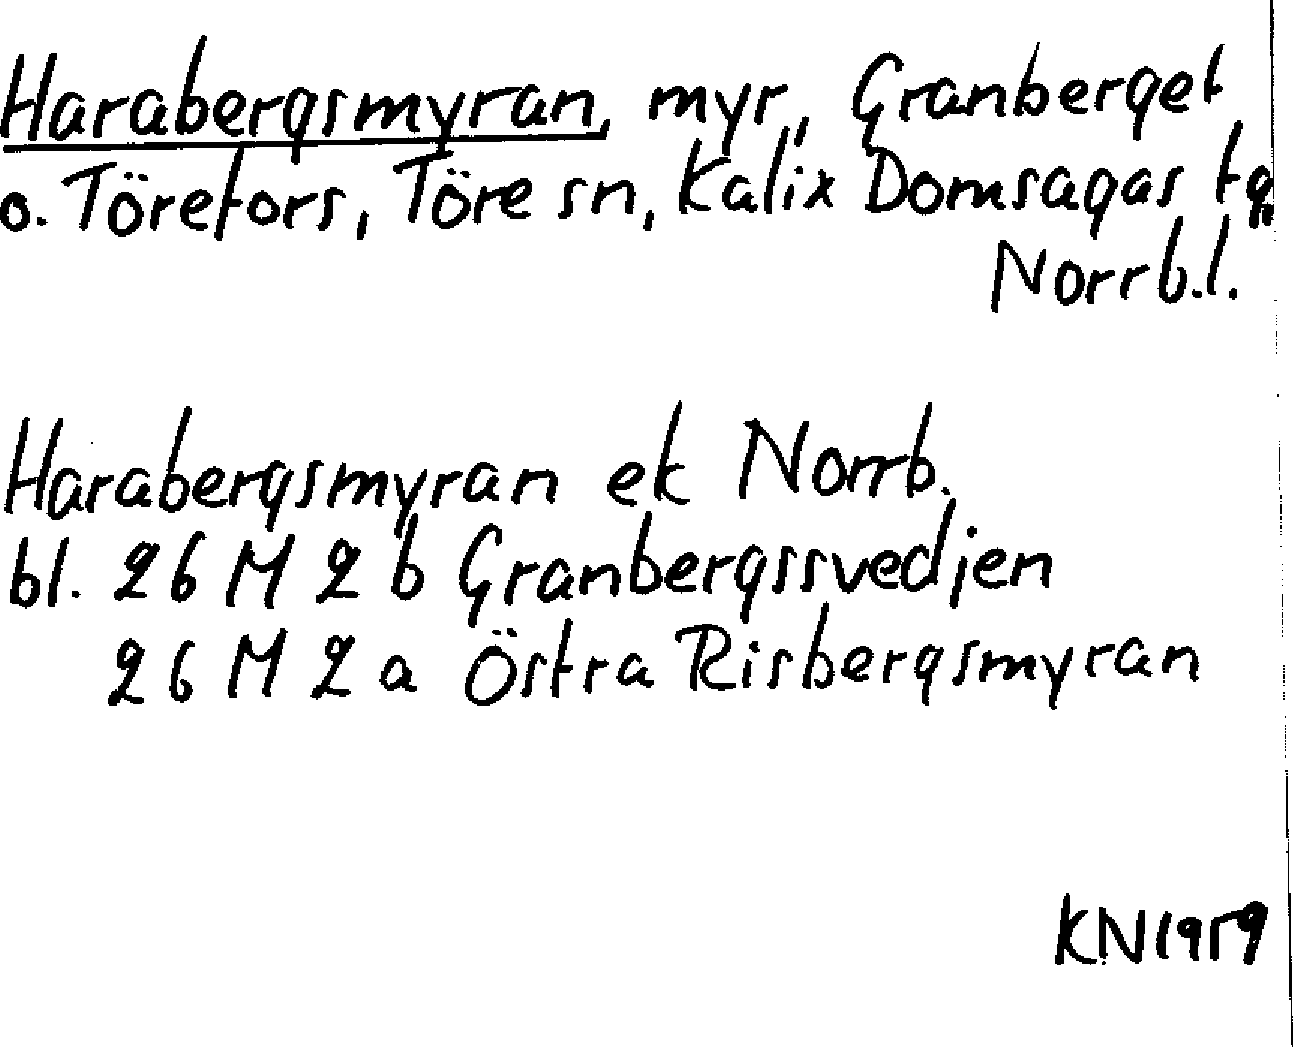 Harabergsmyran, myr, Granberget
o. Törefors, Töre sn, Kalix Domsagas tg,
Norrb.l.
Harabergsmyran ek Norrb.
bl. 26 M 2 b Granbergssvedjen
26 M 2 a Östra Risbergsmyran
KN 1959